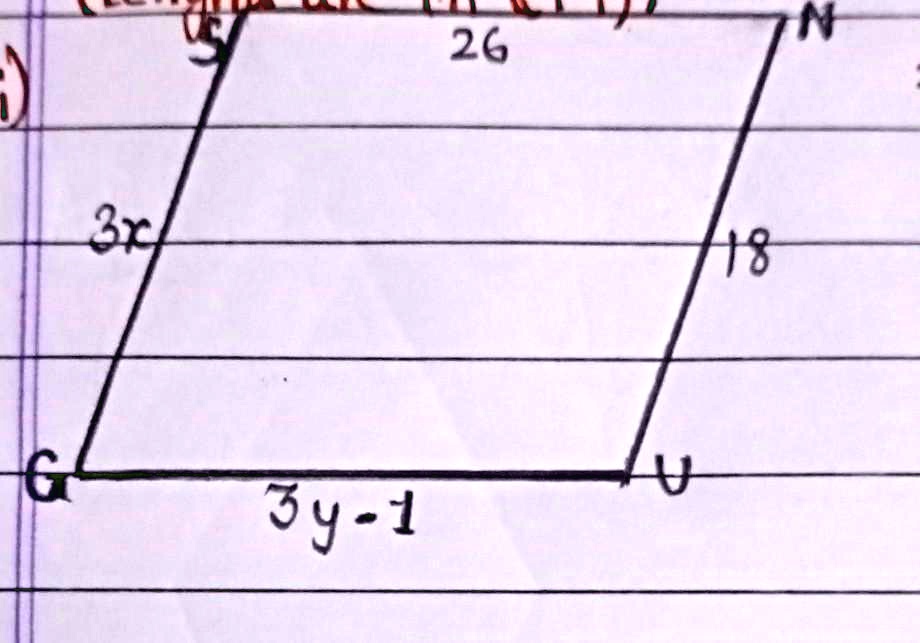 S
N
26
i)
3x
18
G
U
3y-1